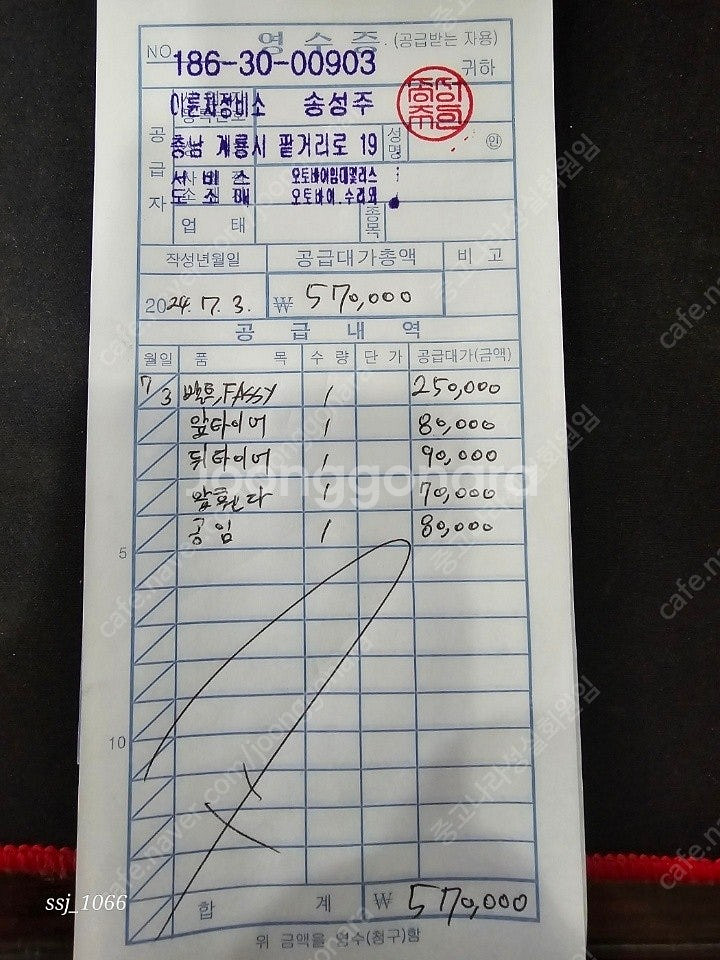 NO. 영 수 증 (공급받는 자용)
186-30-00903 귀하
이륜차정비소 송성주
공급자
충남 계룡시 팥거리로 19 성명 인
서비스 오토바이임대및리스
도소매 오토바이.수리외
업 태 종목
작성년월일 공급대가총액 비 고
2024. 7. 3. ₩ 570,000
공 급 내 역
월일 품 목 수 량 단 가 공급대가(금액)
7/3 벨트,FASSY 1 250,000
앞타이어 1 80,000
뒤타이어 1 90,000
앞휀다 1 70,000
공임 1 80,000
5
10
합 계 ₩ 570,000
위 금액을 영수(청구)함
ssj_1066
joonggonara
cafe.naver.com/joonggonara
중고나라성실회원임